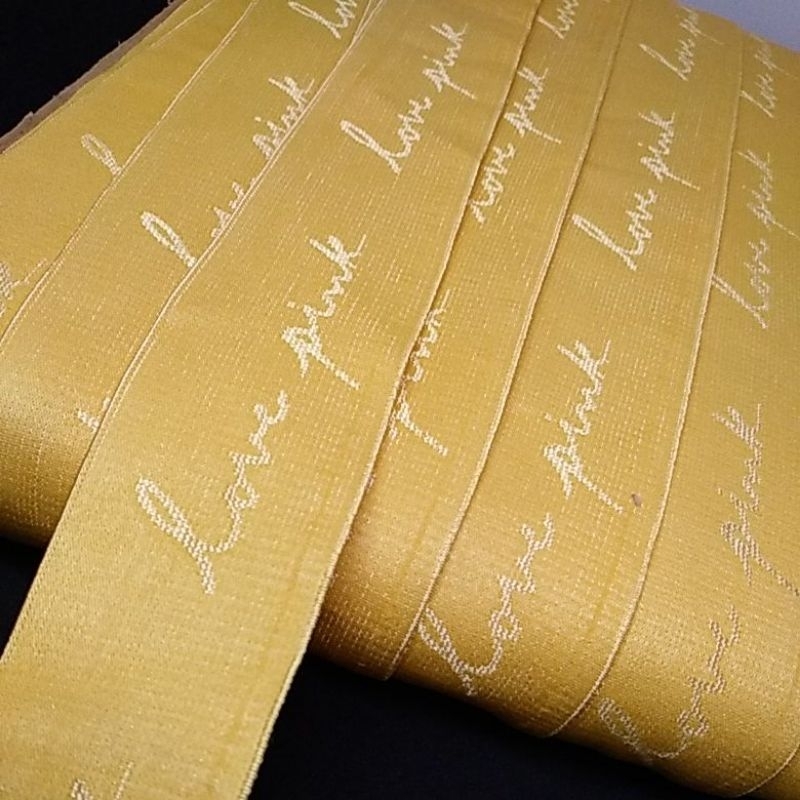 love pink
love pink
love pink
love pink
love pink
love pink
love pink
love pink
love pink